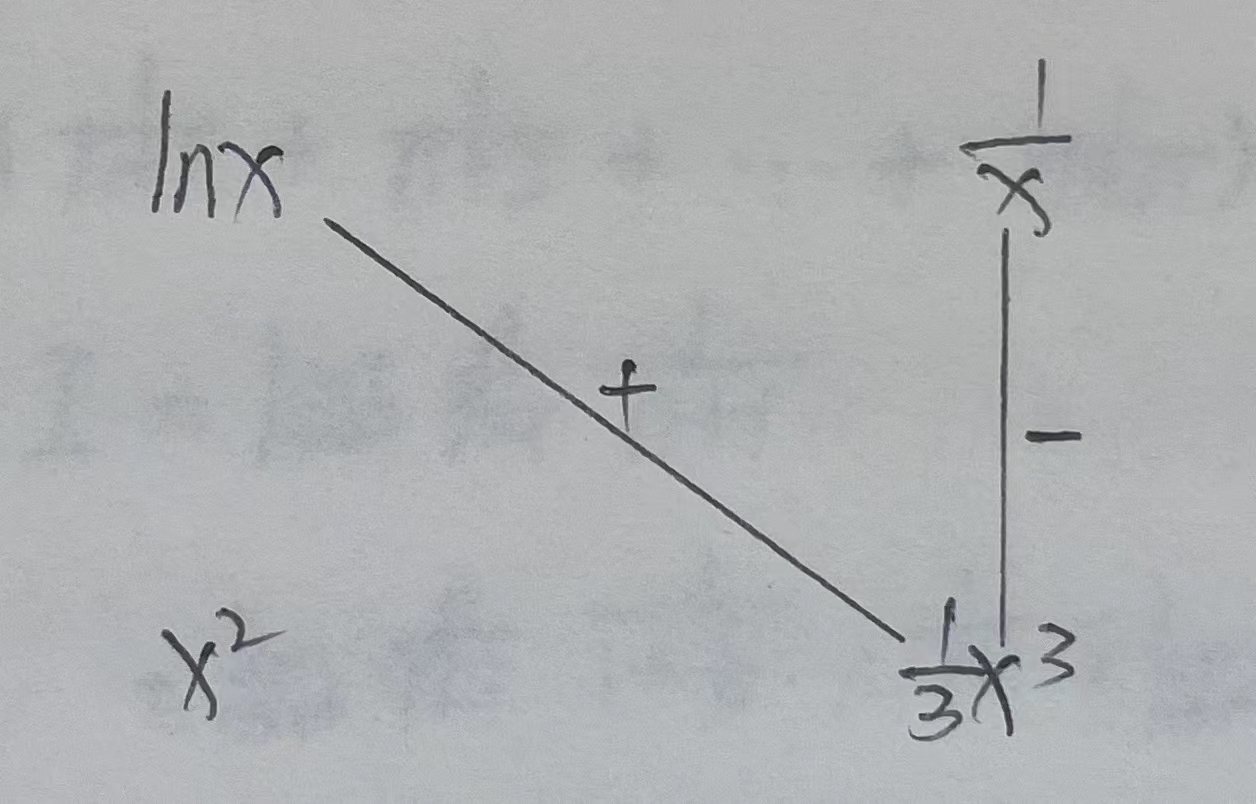 ln x   1/x
+
−
x²   1/3 x³